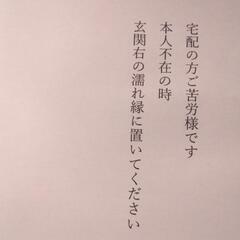 宅配の方ご苦労様です
本人不在の時
玄関右の濡れ縁に置いてください